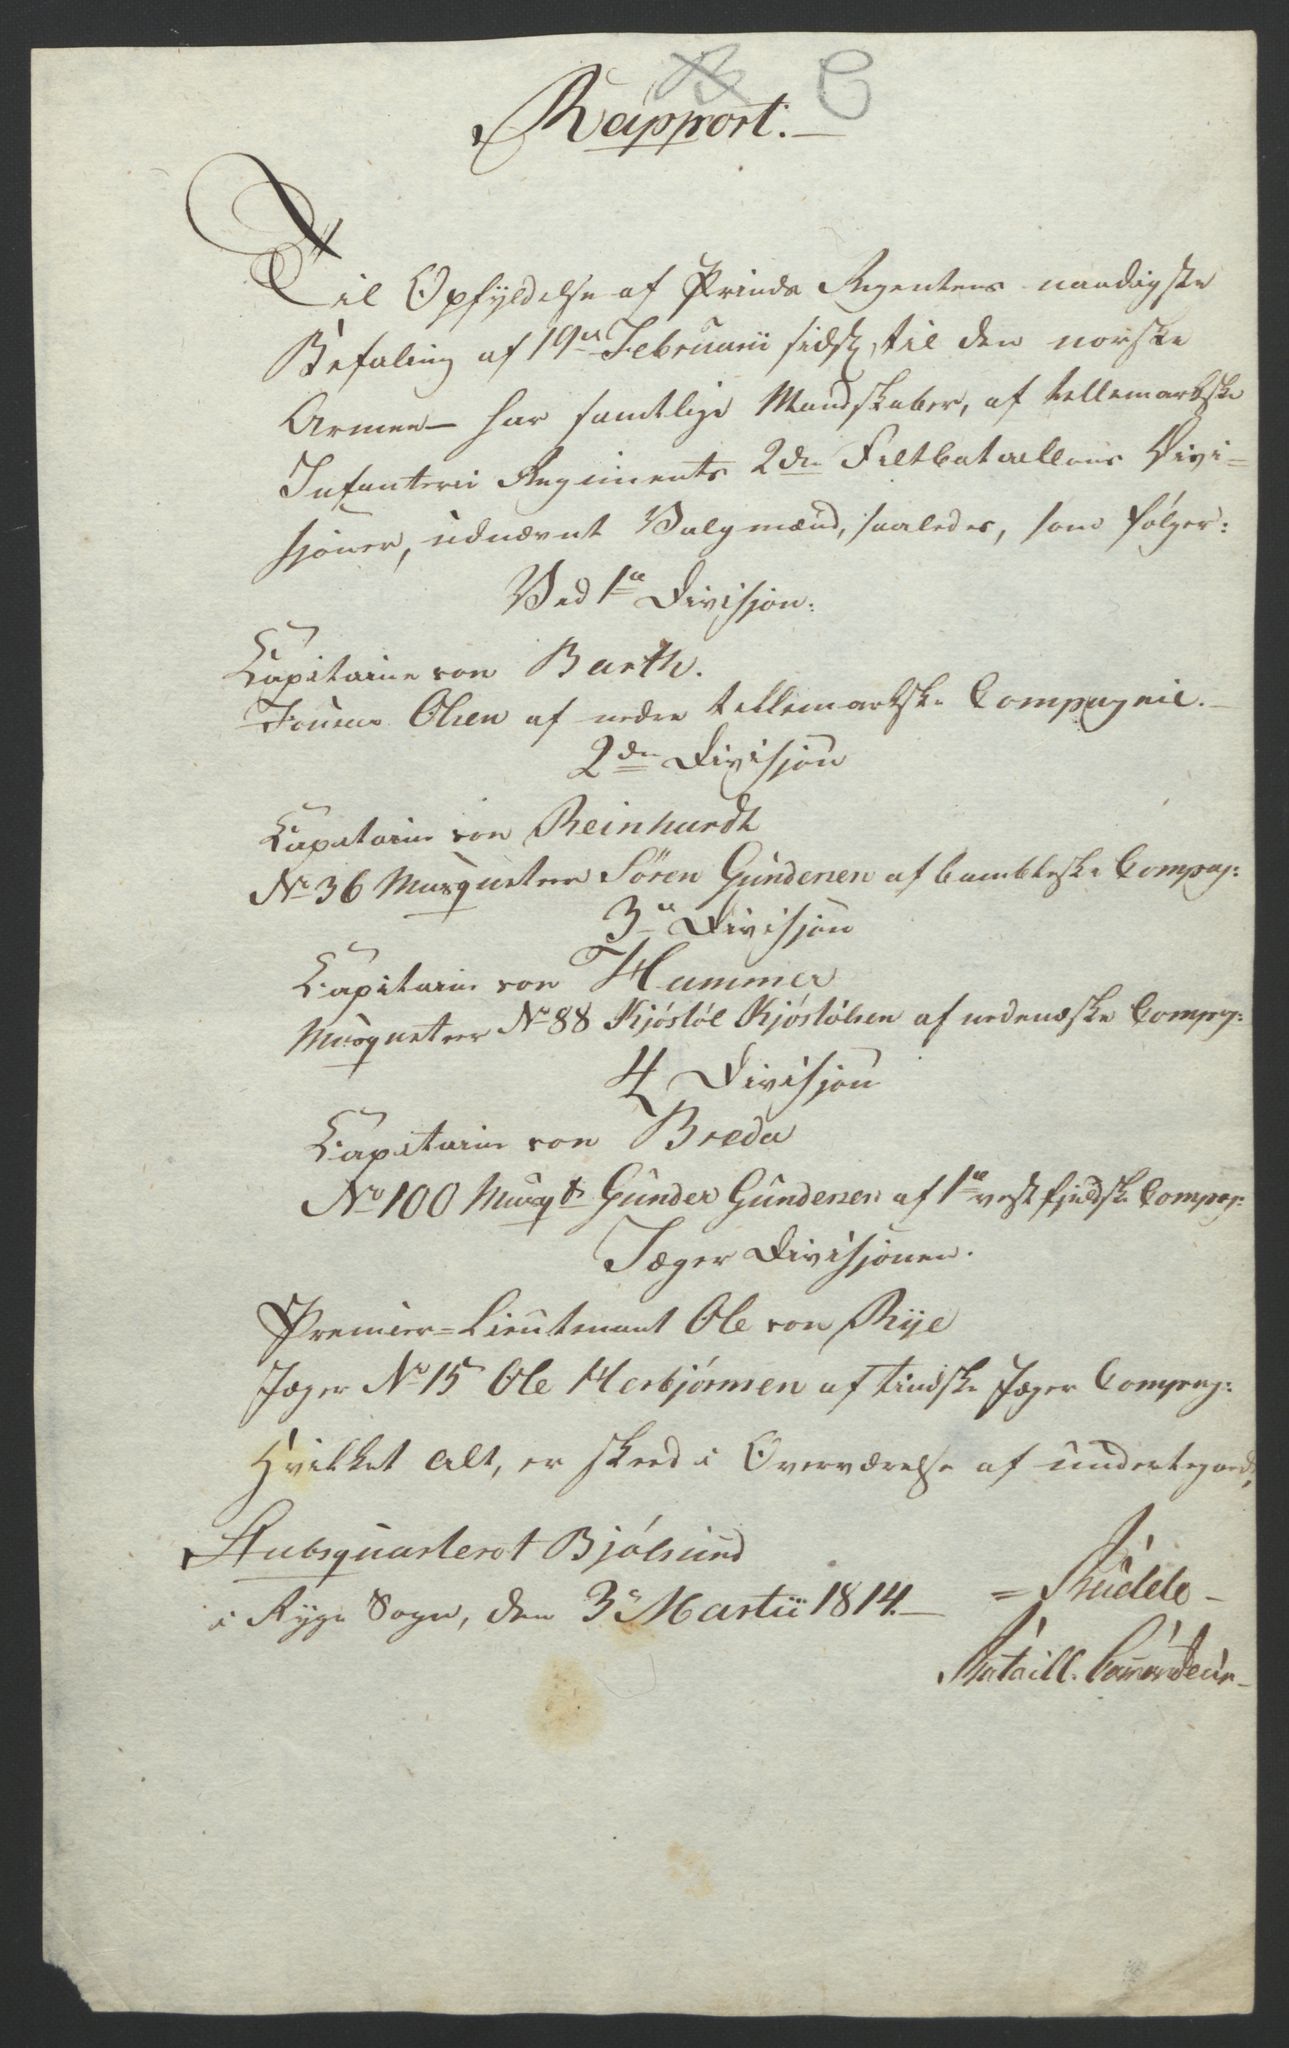 C
Rapport.
Til Opfyldelse af Prinds Regentens naadigste
Befaling af 19de Februarii sidstl. til den norske
Armee har samtlige Mandskaber, af tellemarkske
Infanterie Regiments 2den Feltbataillons Divi-
sjoner, udnævnt Valgmænd, saaledes, som følger:
Ved 1te Divisjon:
Capitaine von Barth.
Olsen af nedre tellemarkske Compagnie.
2den Divisjon
Capitaine von Reinhardt
No 36 Musqueteer Sören Gundersen af bambleske Compag:
3die Divisjon
Capitaine von Hammer
Musqueteer No 88 Kjöstöl Kjöstölsen af nedenæske Compag:
4 Divisjon
Capitaine von Breda
No 100 Musqt. Gunder Gundersen af 1te vestfjeldske Compag:
Jæger Divisjonen.
Premier-Lieutenant Ole von Rye
Jæger No 15 Ole Herbjörnsen af tindske Jæger Compag:
Hvilket alt, er skeed i Overværelse af undertegned,
Stabsquarteret Bjölsund
i Rygge Sogn, den 3de Martii 1814.
= Budde -
Bataill. Commandeur